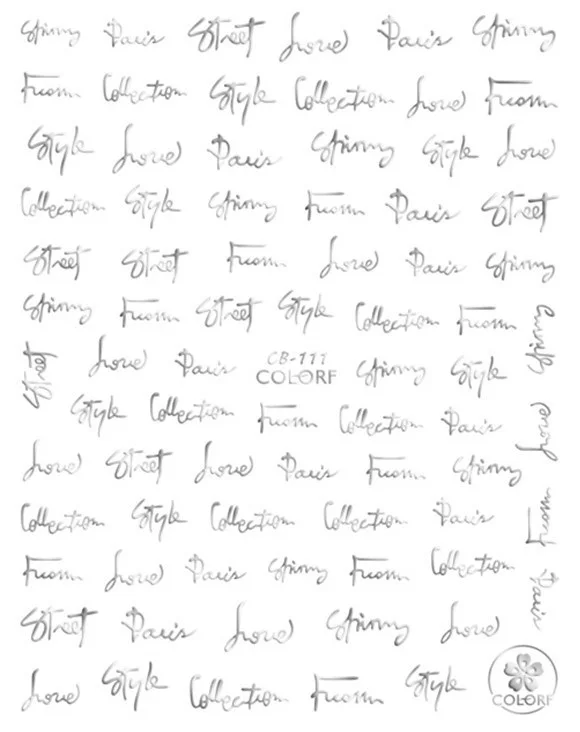 Spinny Paris Street Love Paris Spinny
From Collection Style Collection Love From
Style Love Paris Spinny Style Love
Collection Style Spinny From Paris Street
Street Street From Love Paris Spinny
Spinny From Street Style Collection From Spinny
Street Love Paris CB-111 Spinny Style
COLORF
Style Collection From Collection Paris Love
Love Street Love Paris From Spinny
Collection Style Collection Collection Paris From
From Love Paris Spinny From Collection Paris
Street Paris Love Spinny Love
Love Style Collection From Style
COLORF